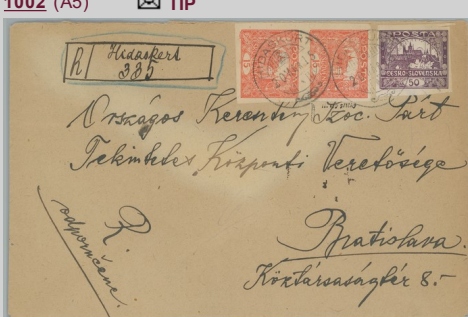 1002 (A5) TIP
R Hidaskert
335
15
ČESKO-SLOVENSKA
50
Országos Kereszény Szoc. Párt
Tekintetes Központi Vezetősége
R.
odporučene.
Bratislava.
Köztársaságtér 8.-